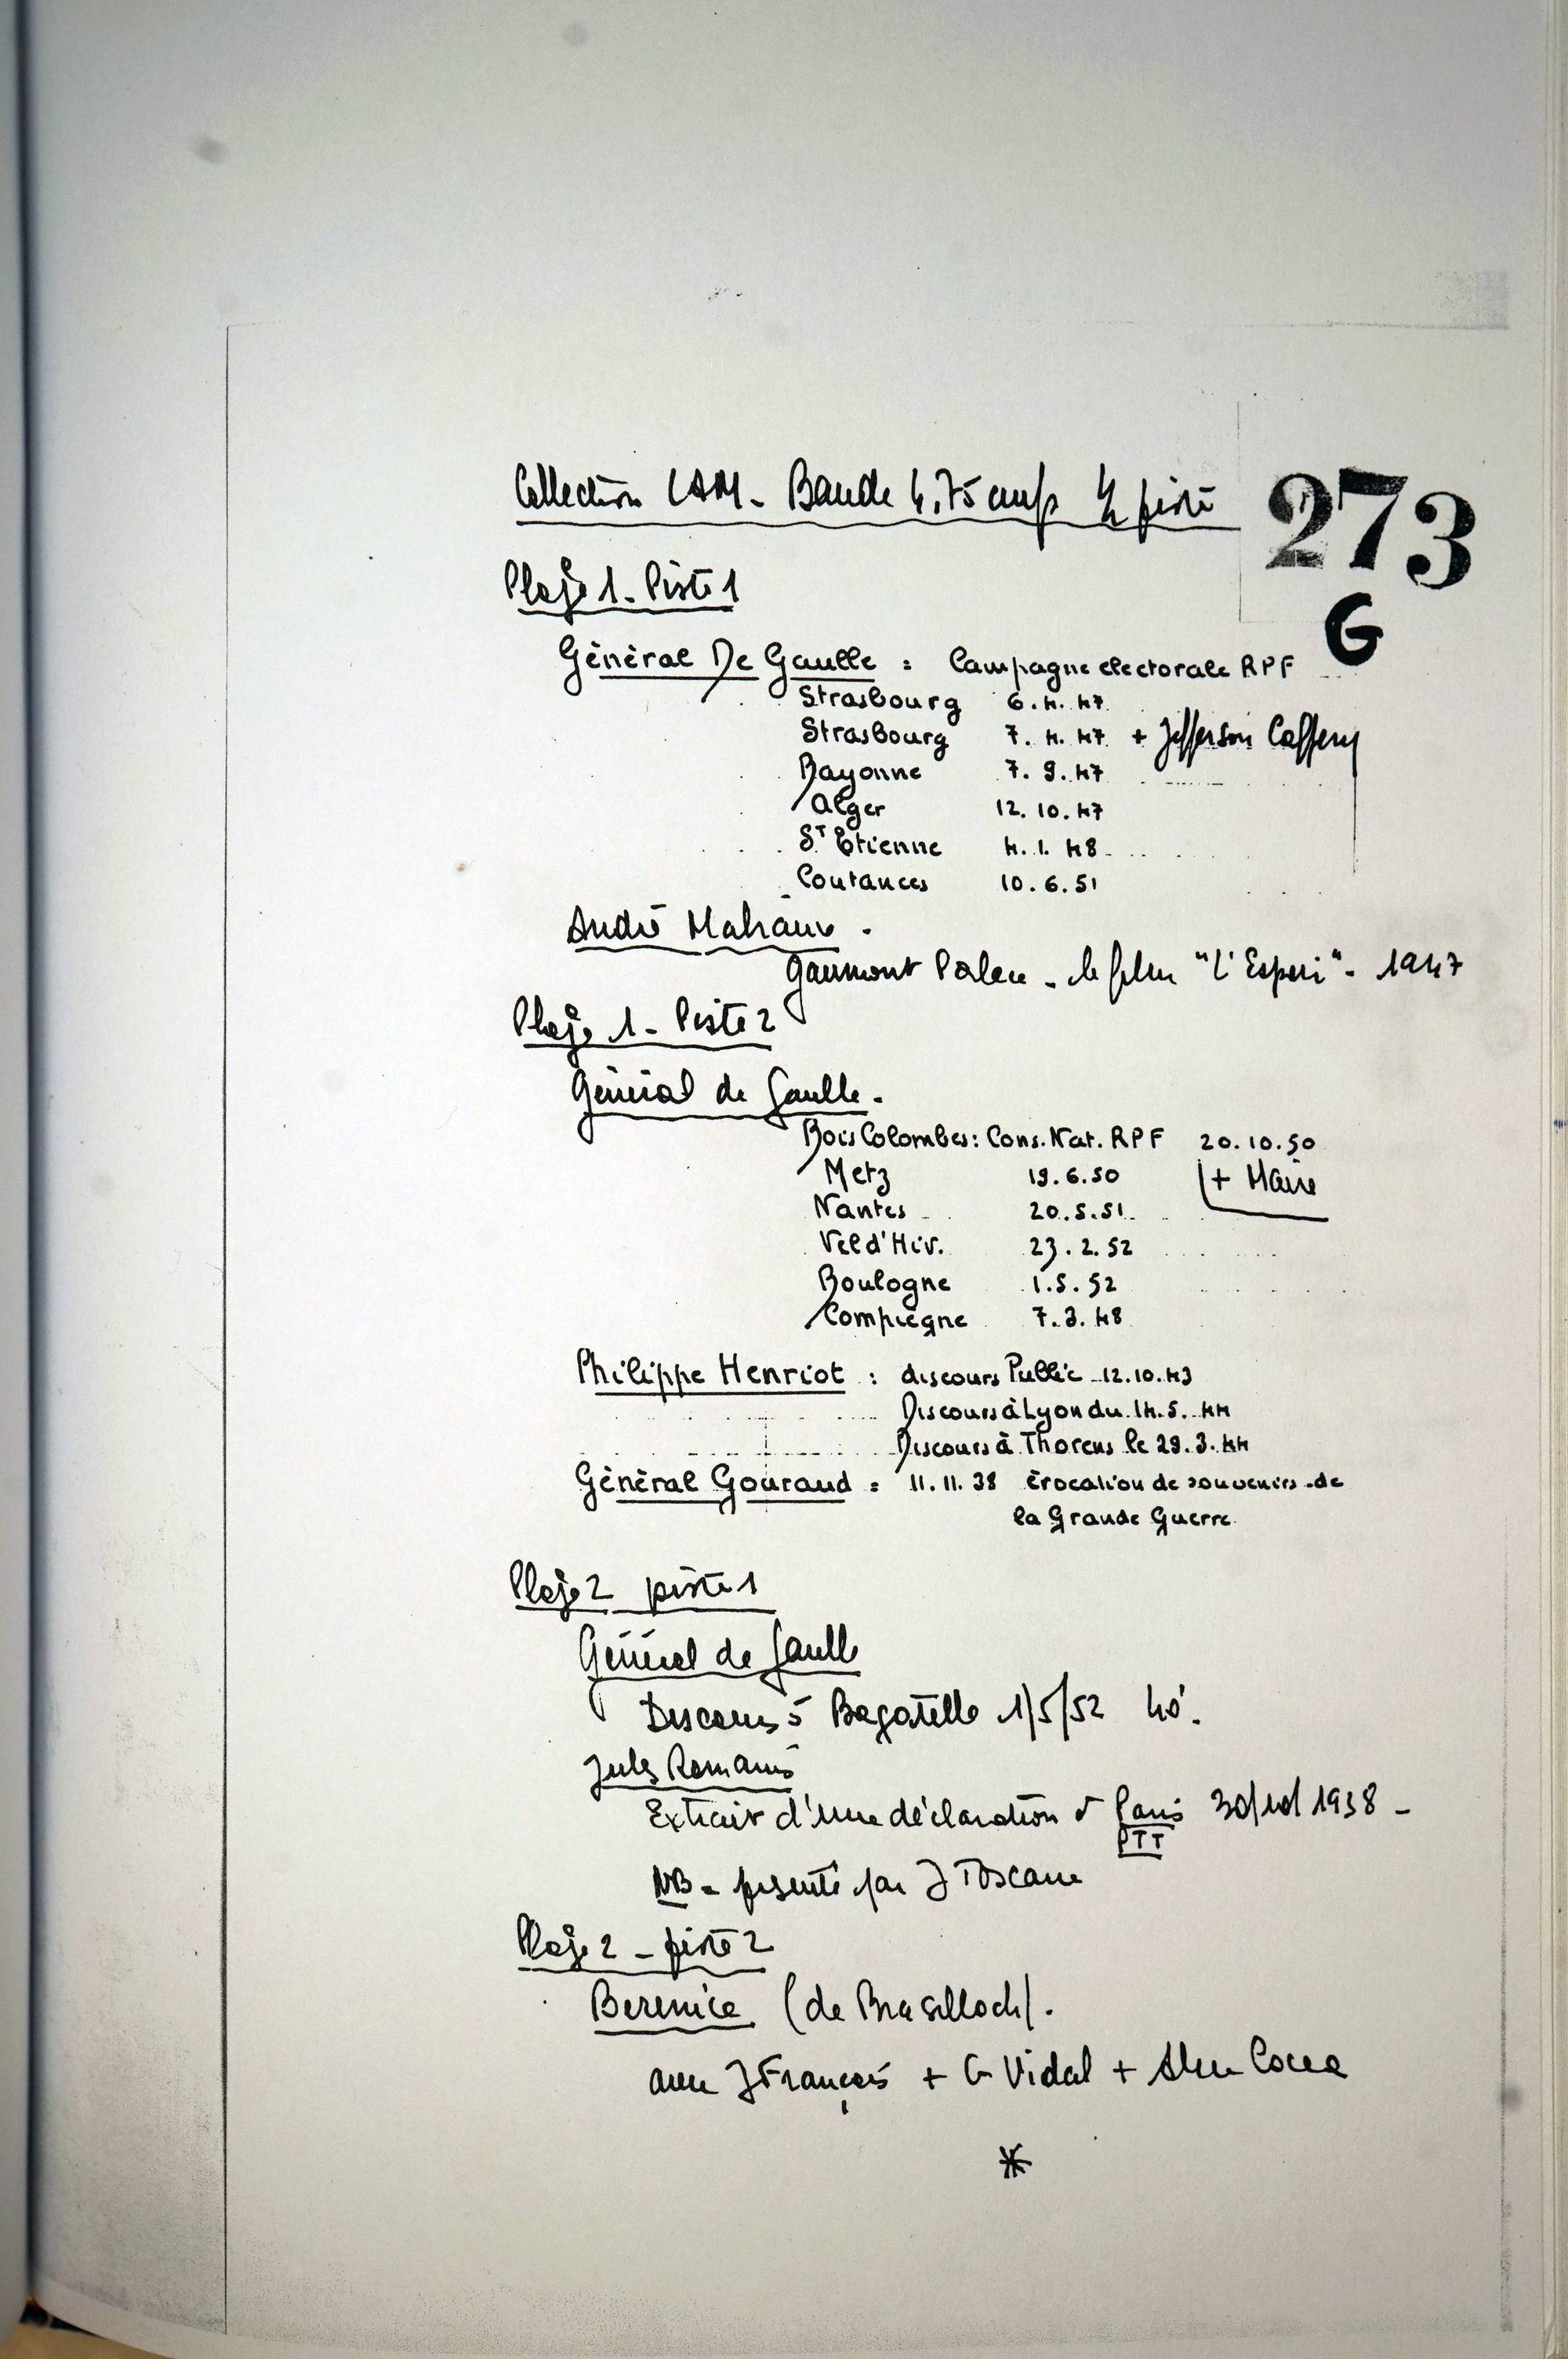 Collection LAM - Bande 4,75 cm/s ½ piste
273
G
Plage 1 - Piste 1
Général De Gaulle : Campagne electorale RPF
Strasbourg 6.4.47
Strasbourg 7.4.47 + Jefferson Caffery
Bayonne 7.9.47
Alger 12.10.47
St Etienne 4.1.48
Coutances 10.6.51
André Malraux -
Gaumont Palace - le film "L'Espoir" - 1947
Plage 1 - Piste 2
Général de Gaulle -
Bois Colombes: Cons. Nat. RPF 20.10.50
Metz 19.6.50 + Maire
Nantes 20.5.51
Vel d'Hiv. 23.2.52
Boulogne 1.5.52
Compiègne 7.3.48
Philippe Henriot : discours Public 12.10.43
Discours à Lyon du 14.5.44
Discours à Thorens le 29.3.44
Général Gouraud = 11.11.38 évocation de souvenirs de
la Grande Guerre
Plage 2 piste 1
Général de Gaulle
Discours à Bagatelle 1/5/52 40'.
Jules Romains
Extrait d'une déclaration à Paris 1938 -
PTT
NB - présenté par J Toscane
Plage 2 - piste 2
Berenice (de Brasillach).
avec J François + G Vidal + Alice Cocea